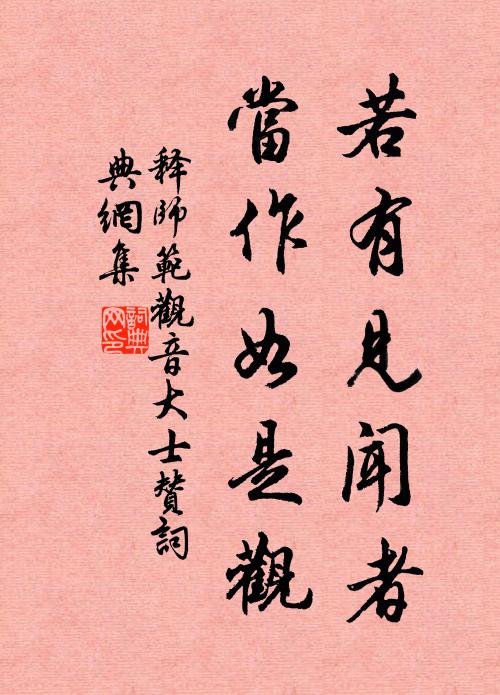 若有見聞者
當作如是觀
釋師範觀音大士贊詞
典網集
詞典
网印